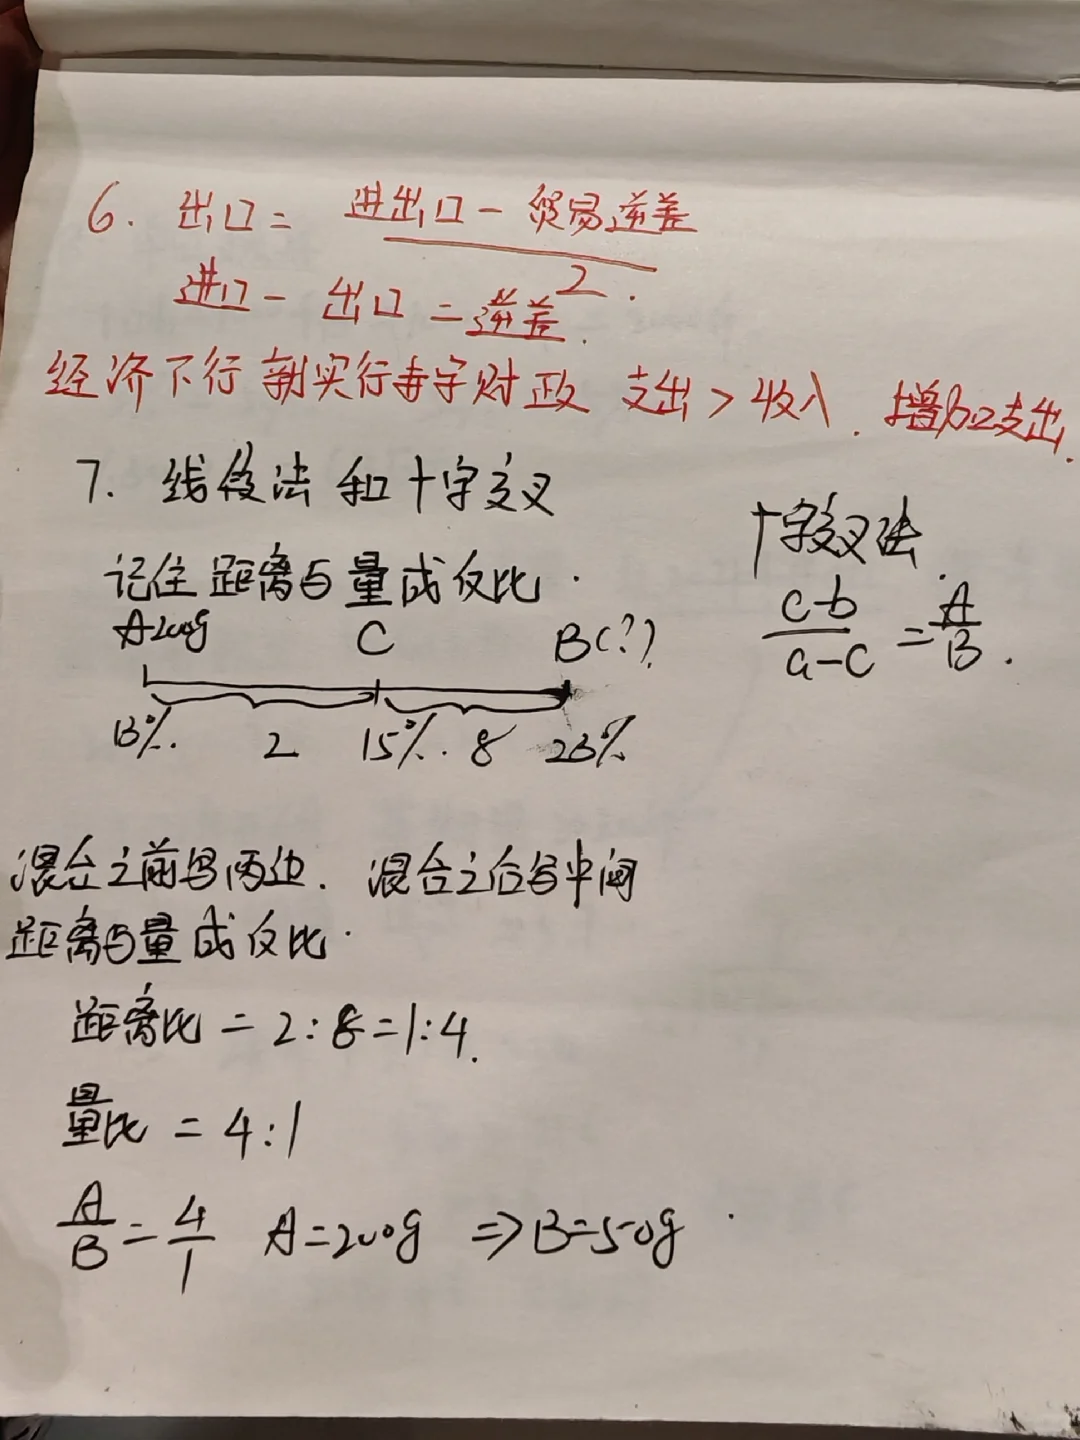 6. 出口 = 进出口 - 贸易逆差
2.
进口 - 出口 = 逆差.
经济下行 就实行赤字财政 支出 > 收入. 增加支出.
7. 线段法 和 十字交叉
记住 距离与量成反比.
A 200g C B(?)
13%. 2 15%. 8 23%
十字交叉法.
c-b
a-c
=
A
B.
混合之前写两边. 混合之后写中间
距离与量成反比.
距离比 = 2:8=1:4.
量比 = 4:1
A/B = 4/1 A=200g ⇒ B=50g